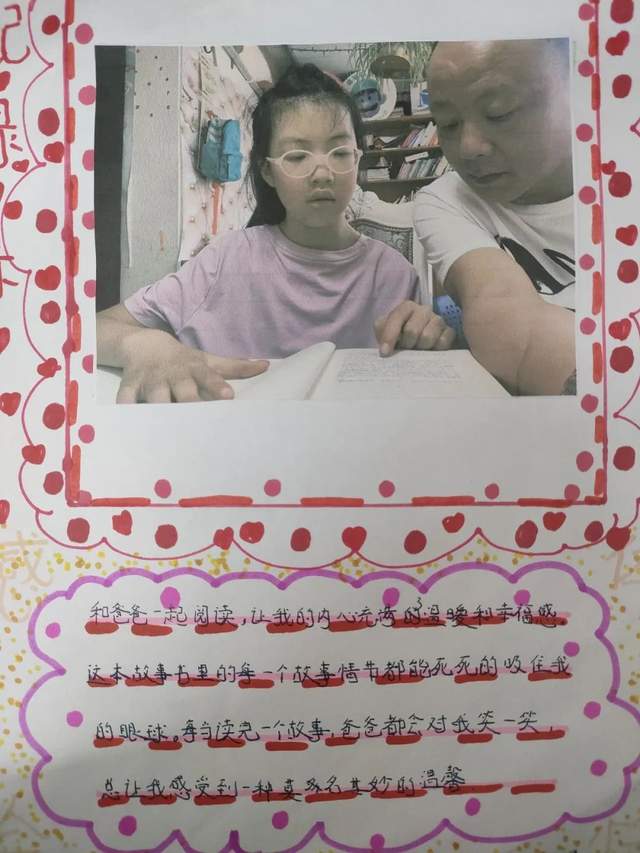 记
录
下
感
和爸爸一起阅读,让我的内心充满的温暖和幸福感。
这本故事书里的每一个故事情节都能死死的吸住我
的眼球。每当读完一个故事,爸爸都会对我笑一笑,
总让我感受到一种莫名其妙的温馨……